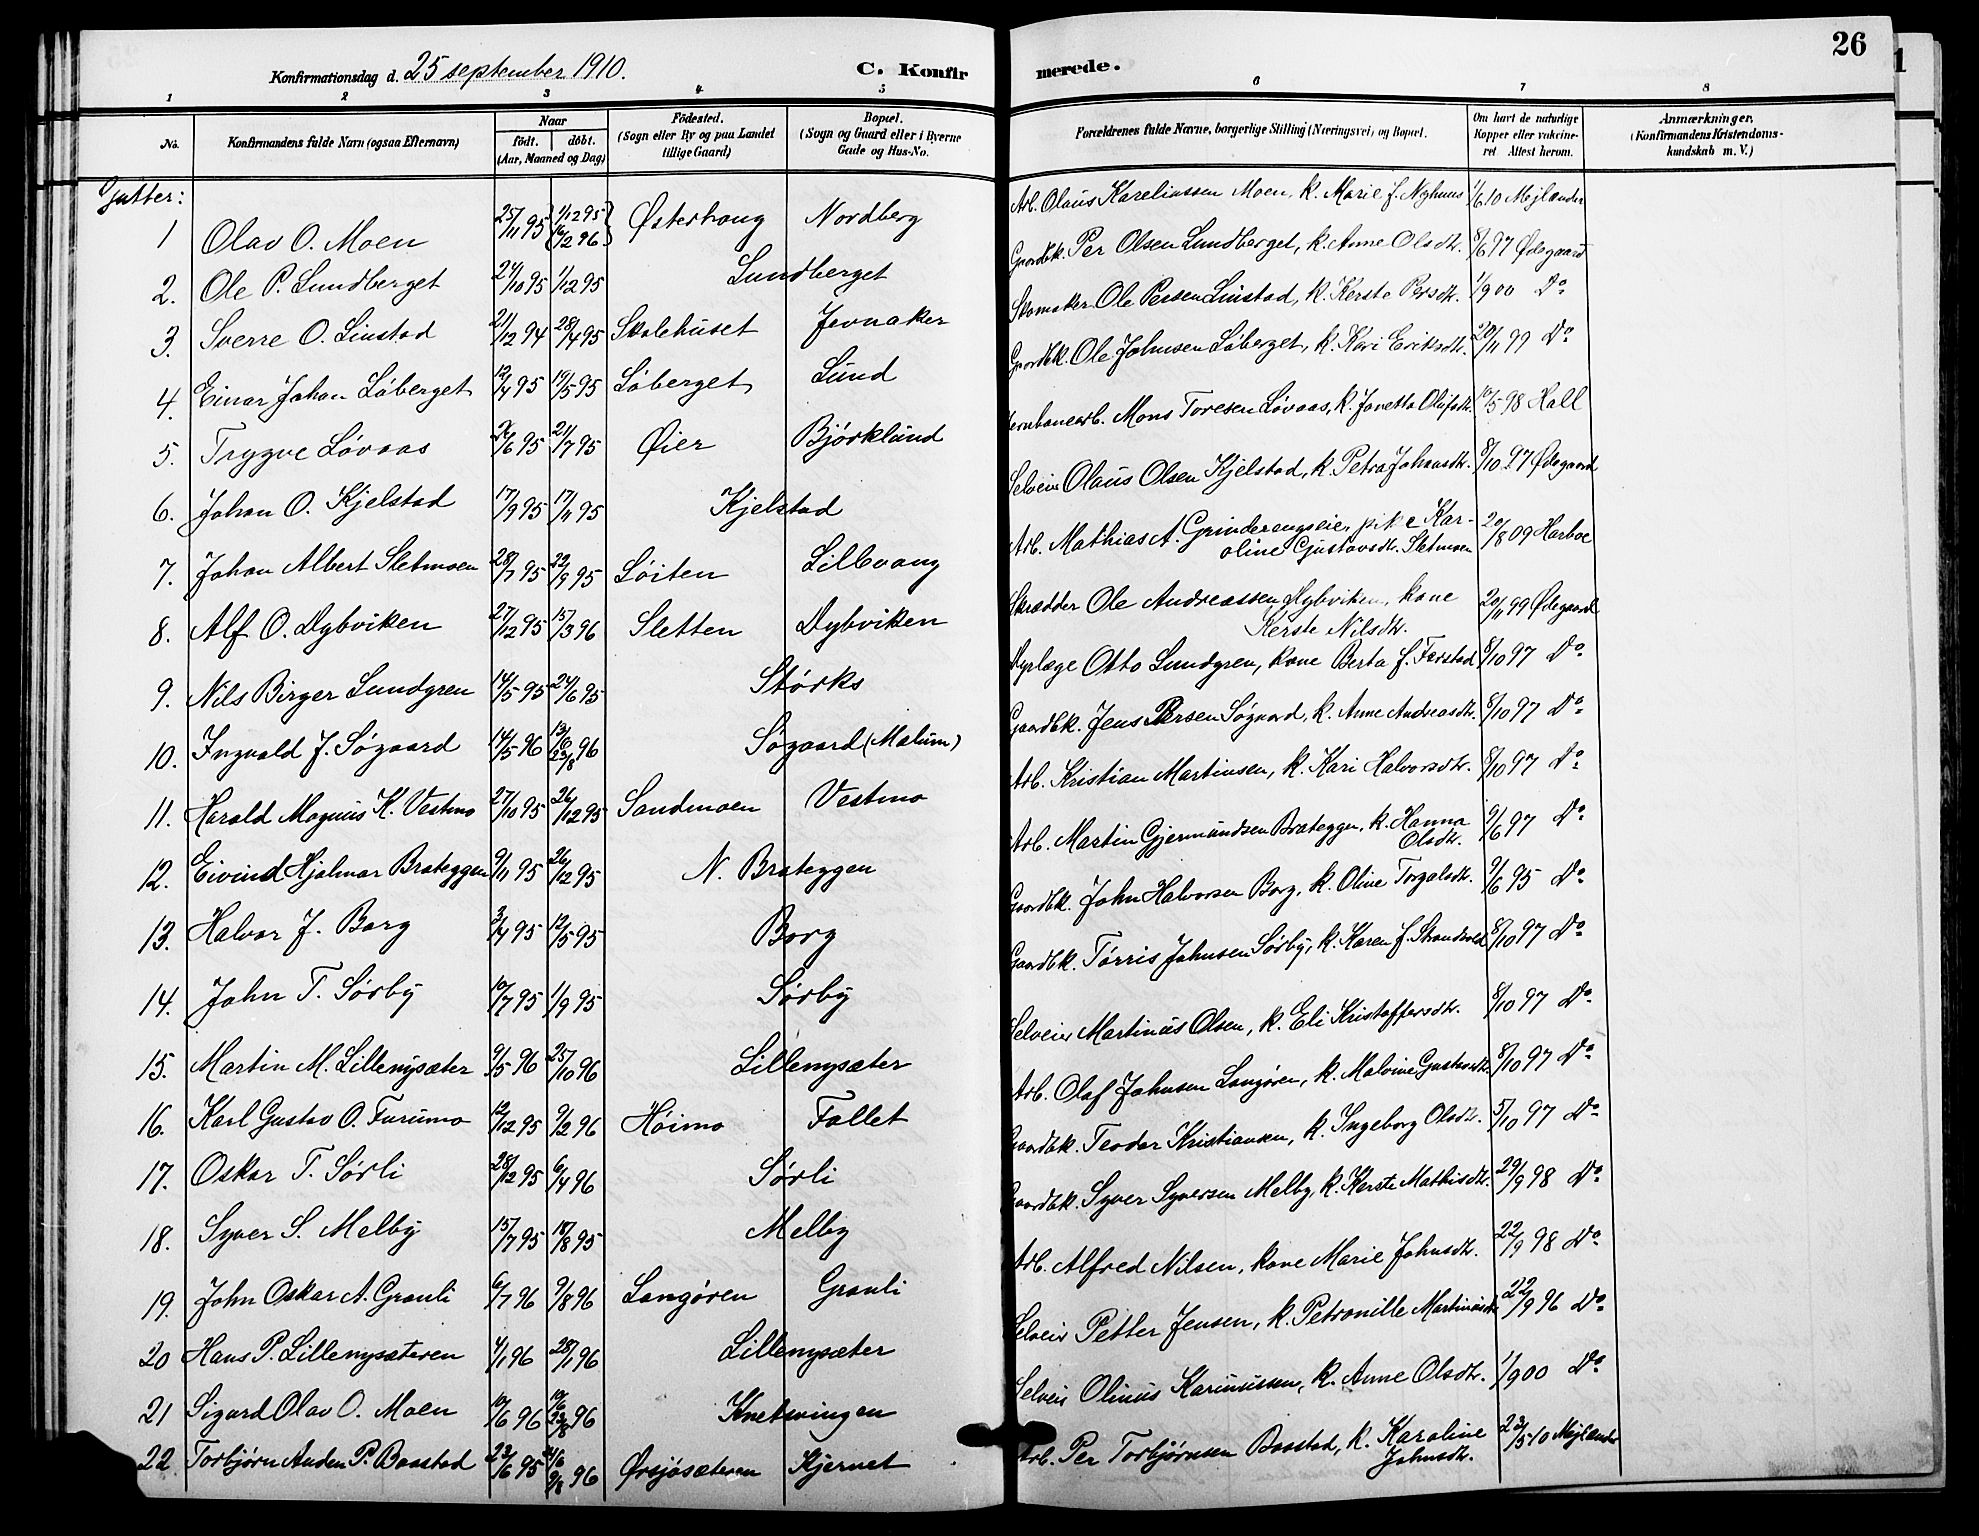 26
Konfirmationsdag d. 25 september 1910.
C. Konfirmerede.
1 2 3 4 5 6 7 8
No.
Konfirmandens fulde Navn (ogsaa Efternavn)
Naar
født. døbt.
(Aar, Maaned og Dag)
Fødested.
(Sogn eller By og paa Landet
tillige Gaard)
Bopæl.
(Sogn og Gaard eller i Byerne
Gade og Hus-No.
Forældrenes fulde Navne, borgerlige Stilling (Næringsvei) og Bopæl.
Om havt de naturlige
Kopper eller vakcine-
ret Attest herom.
Anmærkninger,
(Konfirmandens Kristendoms-
kundskab m. V.)
Gutter:
1 Olav O. Moen 25/11 95 {1/12 95 16/2 96} Østerhaug Nordberg Arb. Olaus Kareliussen Moen, k. Marie f. Nyhuus 1/6 10 Mejlænder
2. Ole P. Lundberget 24/10 95 1/12 95 Lundberget Gaardbk. Per Olsen Lundberget, k. Anne Olsdtr. 8/6 97 Ødegaard
3. Sverre O. Linstad 21/12 94 28/4 95 Skolehuset Jevnaker Skomaker Ole Persen Linstad, k. Kerste Persdtr. 1/9 00 Do
4. Einar Johan Løberget 12/4 95 19/5 95 Løberget Lund Gaardbk. Ole Johnsen Løberget, k. Kari Eriksdtr. 20/11 99 Do
5. Trygve Løvaas 6 95 21/7 95 Øier Bjørklund Jernbanearb. Mons Toresen Løvaas, k. Janetta Olufsdtr. 10/5 98 Hall
6. Johan O. Kjelstad 17/9 95 17/11 95 Kjelstad Selveier Olaus Olsen Kjelstad, k. Petra Johansdtr. 8/10 97 Ødegaard
7. Johan Albert Sletmoen 28/7 95 22/9 95 Løiten Lillevang Arb. Mathias A. Grinderengseie, pike Kar-
oline Gustavsdtr. Sletmoen 20/8 09 Harboe
8. Alf O. Dybviken 27/12 95 15/3 96 Sletten Dybviken Skrædder Ole Andreassen Dybviken, kone
Kerste Nilsdtr. 20/11 99 Ødegaard
9. Nils Birger Lundgren 14/5 95 24/6 95 Størks Dyrlæge Otto Lundgren, kone Berta f. Farstad 8/10 97 Do
10. Ingvald J. Søgaard 14/5 96 13/6 23/8 96 Søgaard (Malum) Gaardbk. Jens Persen Søgaard, k. Anne Andreasdtr. 8/10 97 Do
11. Harald Magnus K. Vestmo 27/10 95 26/12 95 Sandmoen Vestmo Arb. Kristian Martinsen, k. Kari Halvorsdtr. 8/10 97 Do
12. Eivind Hjalmar Brateggen 9/11 95 26/12 95 N. Brateggen Arb. Martin Gjermundsen Brateggen, k. Hanna
Olsdtr. 9/6 97 Do
13. Halvor J. Borg 3/4 95 12/5 95 Borg Gaardbk. John Halvorsen Borg, k. Oline Torgalsdtr. 9/6 95 Do
14. John T. Sørby 10/7 95 1/9 95 Sørby Gaardbk. Tørris Johnsen Sørby, k. Karen f. Strandvold 8/10 97 Do
15. Martin M. Lillenysæter 9/5 96 25/10 96 Lillenysæter Selveier Martinus Olsen, k. Eli Kristoffersdtr. 8/10 97 Do
16. Karl Gustav O. Furumo 12/12 95 9/2 96 Høimo Fallet Arb. Olaf Johnsen Langøren, k. Malvine Gustavsdtr. 8/10 97 Do
17. Oskar T. Sørli 28/12 95 6/4 96 Sørli Gaardbk. Teodor Kristiansen, k. Ingeborg Olsdtr. 5/10 97 Do
18. Syver S. Melby 15/7 95 18/8 95 Melby Gaardbk. Syver Syversen Melby, k. Kerste Mathisdtr. 29/9 98 Do
19. John Oskar A. Granli 6/7 96 9/8 96 Langøren Granli Arb. Alfred Nilsen, kone Marie Johnsdtr. 22/9 98 Do
20 Hans P. Lillenysæteren 4/1 96 28/1 96 Lillenysæter Selveier Petter Jensen, k. Petronille Martinusdtr. 22/9 96 Do
21 Sigurd Olav O. Moen 10/6 96 19/6 23/8 96 Knetvingen Selveier Olinus Karinussen, k. Anne Olsdtr. 1/9 00 Do
22 Torbjørn Auden P. Baastad 23/6 95 9/8 96 Ørsjøsæteren Kjernet Arb. Per Torbjørnsen Baastad, k. Karoline
Johnsdtr. 23/5 10 Mejlænder